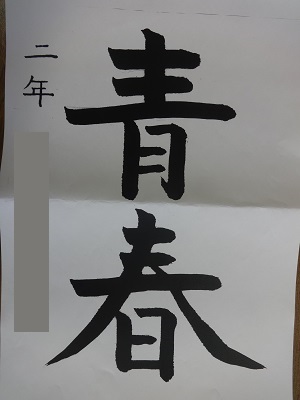 青春
二年